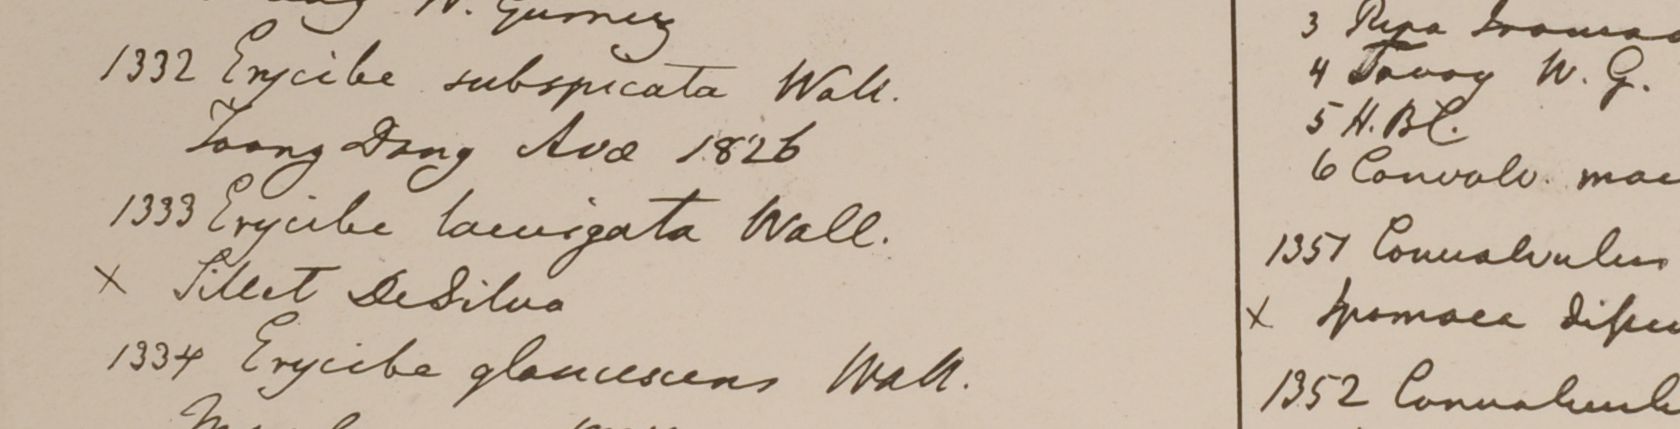 W. Gomez
1332 Erycibe subspicata Wall.
Toong Dong Ava 1826
1333 Erycibe laevigata Wall.
× Sillet DeSilva
1334 Erycibe glaucescens Wall.
3 Ripa
4 Tavoy W. G.
5 H. BC.
6 Convolv. mac
1351 Convolvulus
× Ipomaea
1352 Convolvul